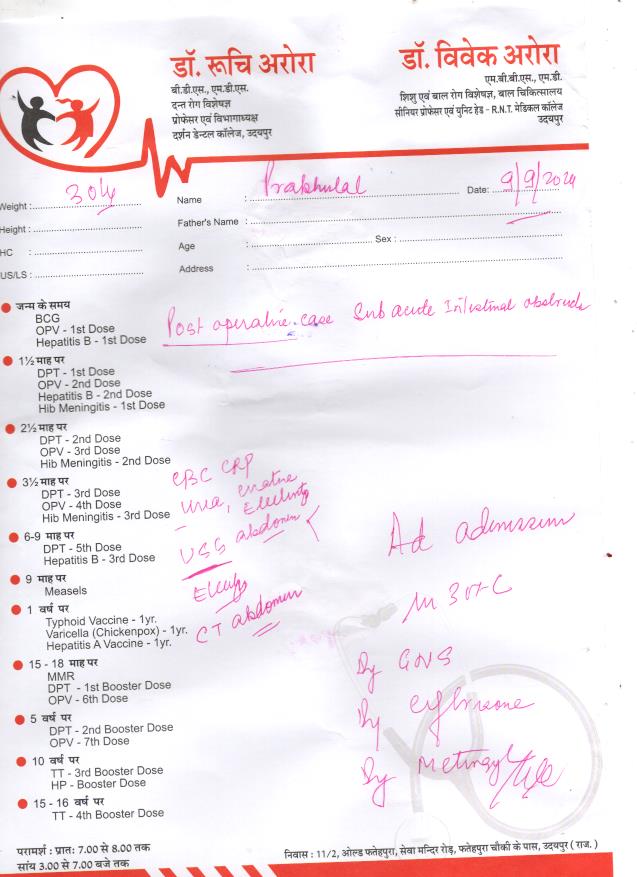 डॉ. रूचि अरोरा
बी.डी.एस., एम.डी.एस.
दन्त रोग विशेषज्ञ
प्रोफेसर एवं विभागाध्यक्ष
दर्शन डेन्टल कॉलेज, उदयपुर
डॉ. विवेक अरोरा
एम.बी.बी.एस., एम.डी.
शिशु एवं बाल रोग विशेषज्ञ, बाल चिकित्सालय
सीनियर प्रोफेसर एवं युनिट हेड - R.N.T. मेडिकल कॉलेज
उदयपुर
Weight :
Name : Prabhulal Date: 9/9/2024
Height :
Father's Name :
HC :
Age : Sex :
US/LS :
Address :
Post operative case Sub acute Intestinal
जन्म के समय
BCG
OPV - 1st Dose
Hepatitis B - 1st Dose
1½ माह पर
DPT - 1st Dose
OPV - 2nd Dose
Hepatitis B - 2nd Dose
Hib Meningitis - 1st Dose
2½ माह पर
DPT - 2nd Dose
OPV - 3rd Dose
Hib Meningitis - 2nd Dose
3½ माह पर
DPT - 3rd Dose
OPV - 4th Dose
Hib Meningitis - 3rd Dose
6-9 माह पर
DPT - 5th Dose
Hepatitis B - 3rd Dose
9 माह पर
Measels
1 वर्ष पर
Typhoid Vaccine - 1yr.
Varicella (Chickenpox) - 1yr.
Hepatitis A Vaccine - 1yr.
15 - 18 माह पर
MMR
DPT - 1st Booster Dose
OPV - 6th Dose
5 वर्ष पर
DPT - 2nd Booster Dose
OPV - 7th Dose
10 वर्ष पर
TT - 3rd Booster Dose
HP - Booster Dose
15 - 16 वर्ष पर
TT - 4th Booster Dose
CBC CRP
Urea,
USG abdomen
CT abdomen
Ad admission
By
By
By Metrogyl
परामर्श : प्रातः 7.00 से 8.00 तक
सांय 3.00 से 7.00 बजे तक
निवास : 11/2, ओल्ड फतेहपुरा, सेवा मन्दिर रोड़, फतेहपुरा चौकी के पास, उदयपुर ( राज. )